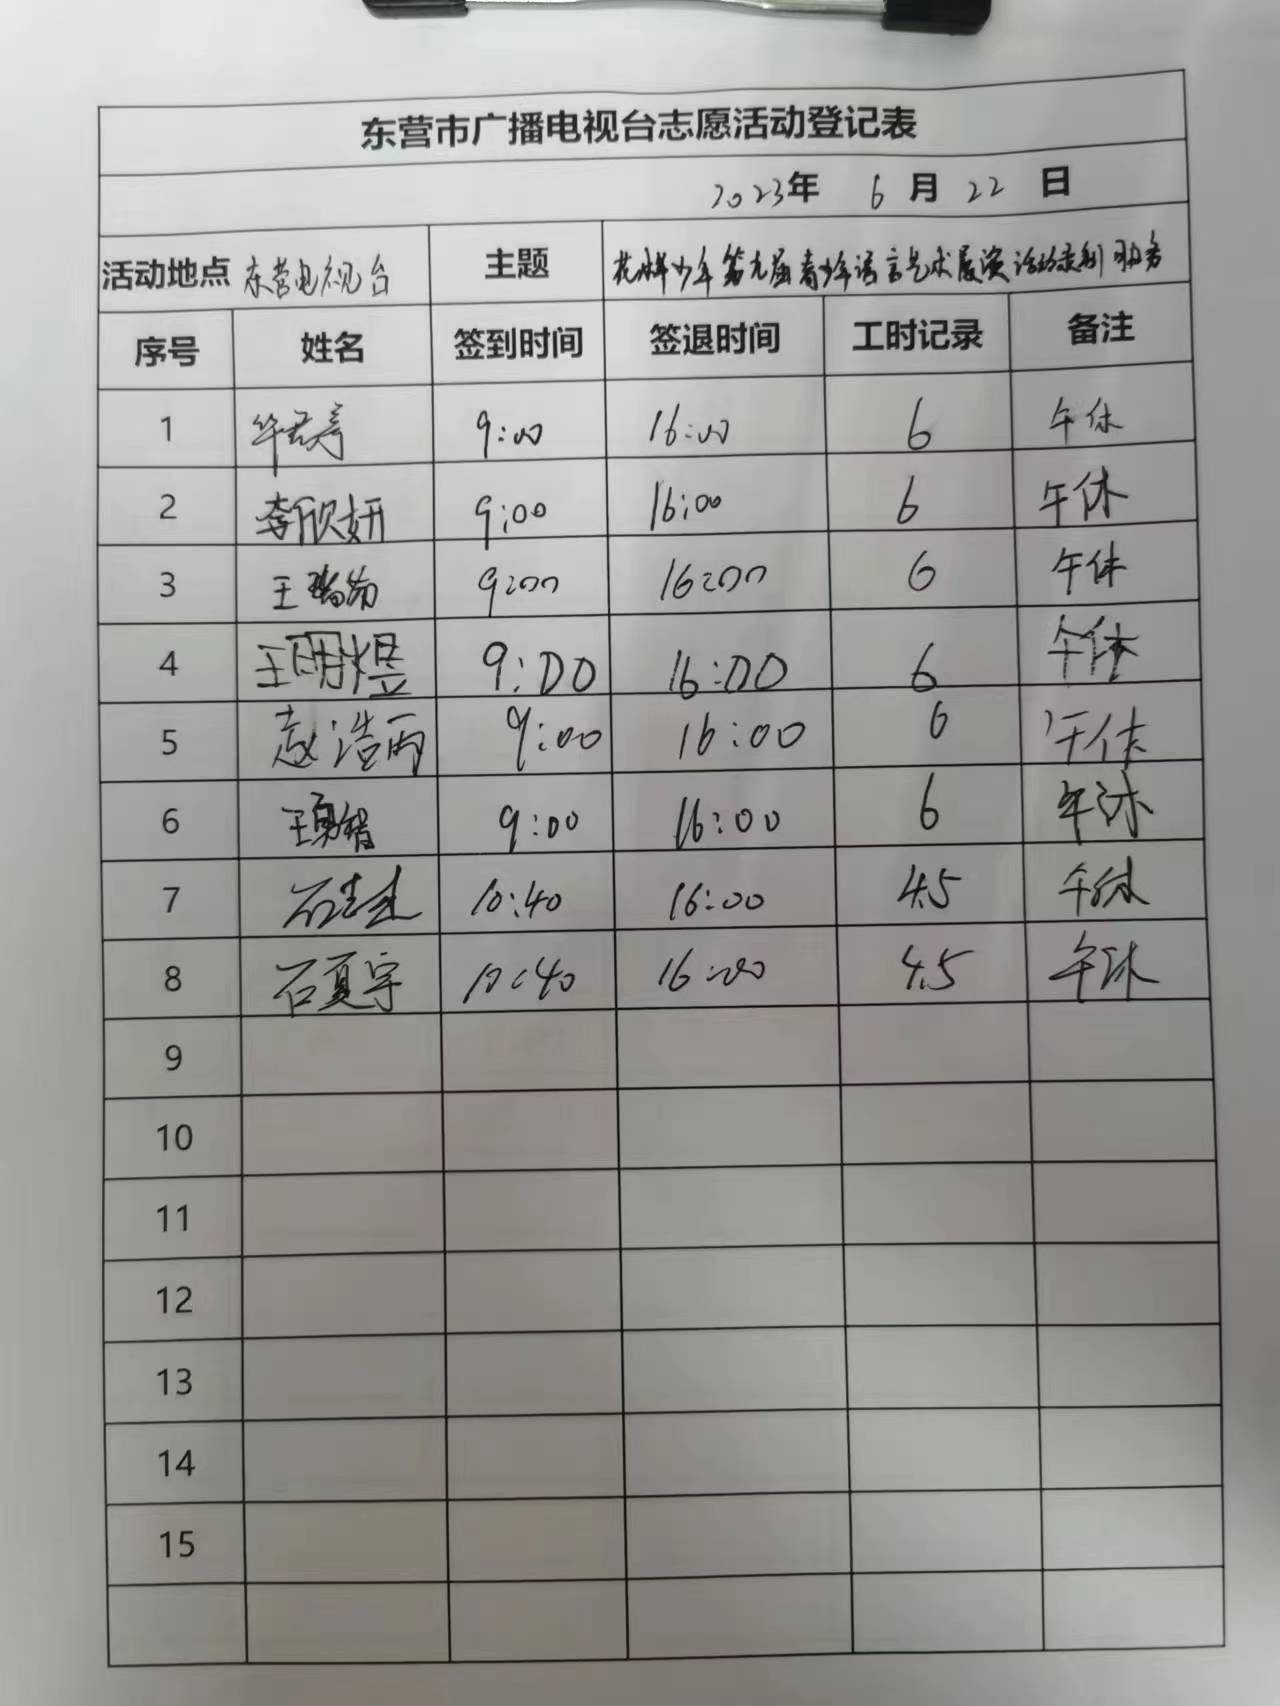 东营市广播电视台志愿活动登记表
2023年 6 月 22 日
活动地点 东营电视台 主题 花样少年第九届青少年语言艺术展演活动录制服务
序号 姓名 签到时间 签退时间 工时记录 备注
1 9:00 16:00 6 午休
2 李欣妍 9:00 16:00 6 午休
3 王 9:00 16:00 6 午休
4 王明煜 9:00 16:00 6 午休
5 赵浩雨 9:00 16:00 6 午休
6 9:00 16:00 6 午休
7 10:40 16:00 4.5 午休
8 石夏宇 10:40 16:00 4.5 午休
9
10
11
12
13
14
15